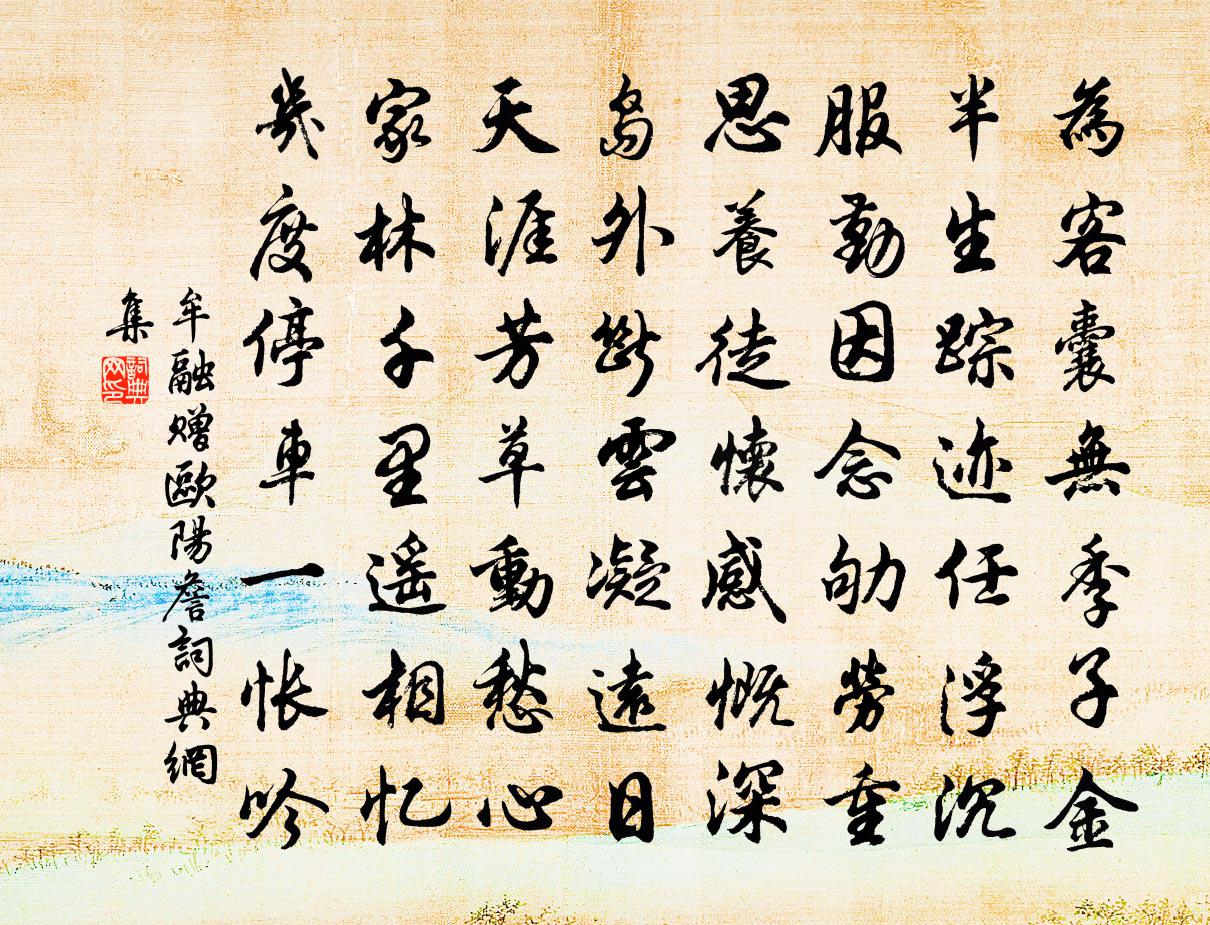 為客囊無季子金
半生踪迹任浮沉
服勤因念劬勞重
思養徒懷感慨深
島外斷雲凝遠日
天涯芳草動愁心
家林千里遥相忆
幾度停車一怅吟
牟融贈歐陽詹詞典網
集
詞典
网印